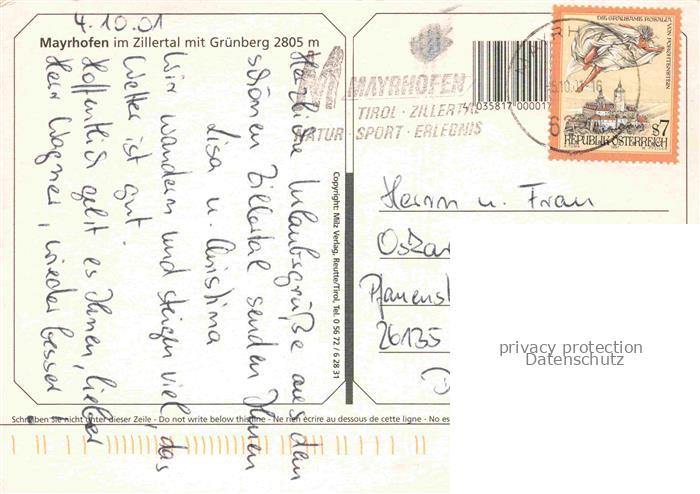 4.10.01
Mayrhofen im Zillertal mit Grünberg 2805 m
Herzliche Urlaubsgrüße aus dem
schönen Zillertal senden Ihnen
Lisa u. Christina
Wir wandern und steigen viel, das
Wetter ist gut.
Hoffentlich geht es Ihnen, lieber
Herr Wagner, wieder besser
Copyright: Milz Verlag, Reutte/Tirol, Tel. 0 56 72 / 6 28 31
MAYRHOFEN
TIROL · ZILLERTAL
NATUR · SPORT · ERLEBNIS
035817 00001
DIE GRAUSAME ROSALIA
VON FORCHTENSTEIN
S7
REPUBLIK ÖSTERREICH
Herrn u. Frau
Oskar
Pfauenst
26135
privacy protection
Datenschutz
Schreiben Sie nicht unter dieser Zeile - Do not write below this line - Ne rien écrire au dessous de cette ligne - No es